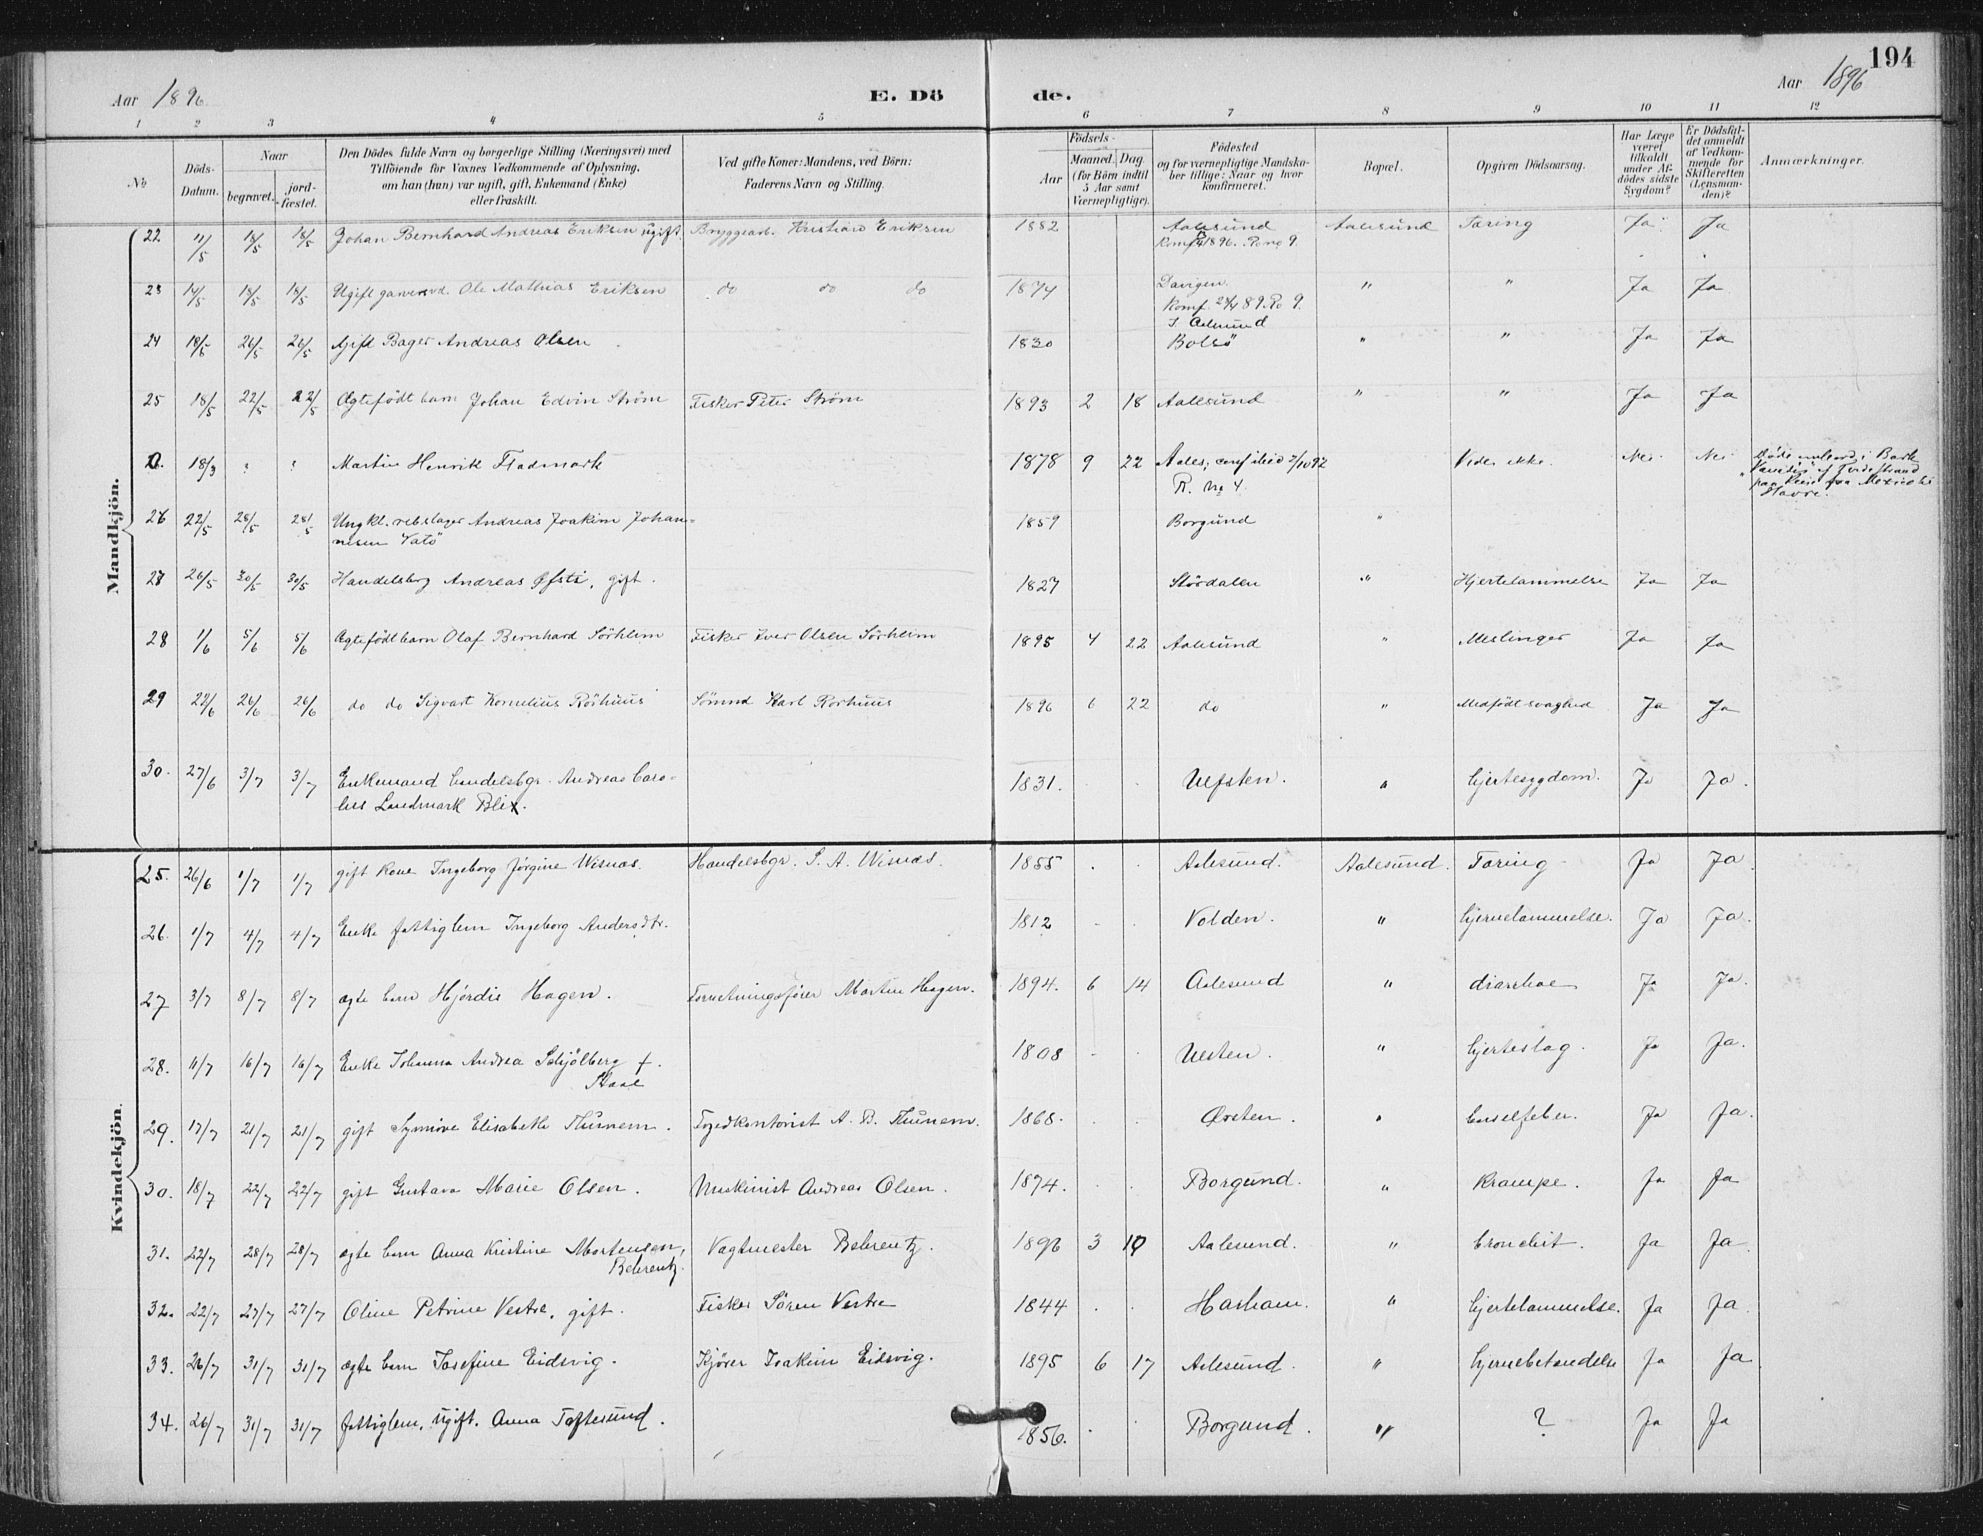 194
Aar 1896
E. Dö de.
Aar 1896
1 2 3 4 5 6 7 8 9 10 11 12
No
Döds-Datum.
Naar
begravet.
jord-fæstet.
Den Dödes fulde Navn og borgerlige Stilling (Næringsvei) med
Tilföiende for Voxnes Vedkommende af Oplysning,
om han (hun) var ugift, gift, Enkemand (Enke)
eller fraskilt.
Ved gifte Koner: Mandens, ved Börn:
Faderens Navn og Stilling.
Födsels-
Aar
Maaned. Dag.
(for Börn indtil
5 Aar samt
Værnepligtige).
Födested
og for værnepligtige Mandska-
ber tillige: Naar og hvor
konfirmeret.
Bopæl.
Opgiven Dödsaarsag.
Har Læge
været
tilkaldt
under Af-
dödes sidste
Sygdom?
Er Dödsfal-
det anmeldt
af Vedkom-
mende for
Skifteretten
(Lensman-
den)?
Anmærkninger.
Mandkjön.
22 11/5 18/5 18/5 Johan Bernhard Andreas Eriksen ugift. Bryggearb. Kristian Eriksen 1882 Aalesund Aalesund Tæring Ja Ja
Konf. 1896. Ro no 9.
23 14/5 18/5 18/5 Ugift garversvd. Ole Mathias Eriksen do do do 1874 Davigen. " " Ja Ja
Konf. 89. Ro 9.
I Aalesund
24 18/5 26/5 26/5 Gift Bager Andreas Olsen 1830 Bolsö " " Ja Ja
25 18/5 22/5 22/5 Ægtefödt barn Johan Edvin Ström Fisker Peter Ström 1893 2 18 Aalesund " " Ja Ja
0. 18/3 Martin Henrik Fladmark 1878 9 22 Aales; conf ibid 2/10 92 Vides ikke. Nei Nei
R. no 4.
Döde ombord i Bark
af Tvedestrand
paa Reise fra Mexico til
Havre.
26 22/5 28/5 28/5 Ungkl. rebslager Andreas Joakim Johan- 1859 Borgund "
nesen Vatö
27 26/5 30/5 30/5 Handelsbg Andreas Öfsti, gift. 1827 Stördalen " Hjertelammelse Ja Ja
28 1/6 5/6 5/6 Ægtefödt barn Olaf Bernhard Sörheim Fisker Iver Olsen Sörheim 1895 4 22 Aalesund " Meslinger Ja Ja
29 22/6 26/6 26/6 do do Sigvart Kornelius Rörhuus Sömnd Karl Rorhuus 1896 6 22 do " Medfödt svaghed Ja Ja
30. 27/6 3/7 3/7 Enkemand handelsbgr. Andreas Caro- 1831. Ulfsten. " hjertesygdom. Ja Ja.
lus Landmark Blix.
Kvindekjön.
25. 26/6 1/7 1/7 gift kone Ingeborg Jørgine Wisnæs. Handelsbgr. S. A. Wisnæs. 1855 Aalesund. Aalesund. Tæring Ja Ja.
26. 1/7 4/7 4/7 Enke fattiglem Ingeborg Andersdtr. 1812 Volden. " hjernelammelse. Ja Ja.
27 3/7 8/7 8/7 ægte barn Hjördis Hagen. Forretningsfører Martin Hagen. 1894. 6 14 Aalesund " diarrhoe Ja Ja.
28. 11/7 16/7 16/7 Enke Johanna Andrea Schjölberg f. 1808 Ulsten. " hjerteslag. Ja Ja.
Staal
29. 17/7 21/7 21/7 gift Synnöve Elisabeth Thunem. Fogedkontorist A. B. Thunem. 1868. Örsten. " barselfeber. Ja Ja.
30. 18/7 22/7 22/7 gift Gustava Marie Olsen. Maskinist Andreas Olsen. 1874. Borgund. " Krampe. Ja Ja
31. 22/7 28/7 28/7 ægte barn Anna Kristine Mortensen, Vagtmester Behrentz. 1896 3 19 Aalesund. " bronchit. Ja Ja.
Behrentz.
32. 22/7 27/7 27/7 Oline Petrine Vestre, gift. Fisker Sören Vestre 1844 Harham. " hjertelammelse. Ja Ja.
33. 26/7 31/7 31/7 ægte barn Josefine Eidsvig. Kjörer Joakim Eidsvig. 1895 6 17 Aalesund. " hjernebetændelse Ja Ja
34. 26/7 31/7 31/7 fattiglem, ugift. Anna Toftesund. 1856. Borgund. " ? Ja Ja